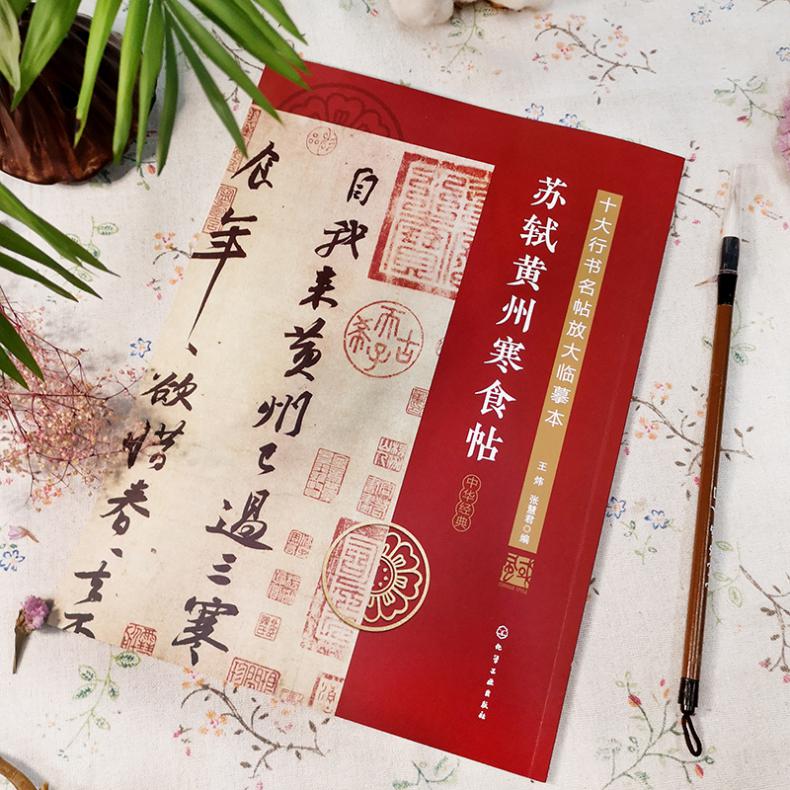 十大行书名帖放大临摹本
苏轼黄州寒食帖
中华经典
王炜 张慧君 编
化学工业出版社
自我来黄州已過三寒
食年、欲惜春、去不